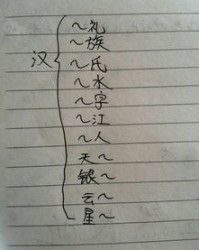 汉
～礼
～族
～氏
～水
～字
～江
～人
天～
银～
云～
星～